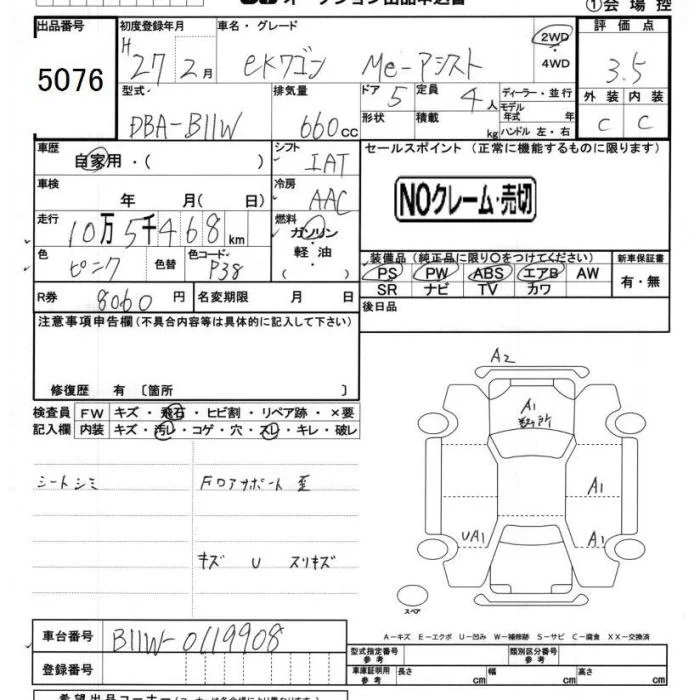 オークション出品申込書 ①会場控
出品番号 初度登録年月 車名・グレード 2WD 評価点
5076 H27 2月 eKワゴン Me-アシスト ・4WD 3.5
型式 排気量 ドア 5 定員 4人 ディーラー・並行 外装 内装
DBA-B11W 660cc 形状 積載 kg モデル年式 年 ハンドル 左・右 C C
車歴 シフト セールスポイント (正常に機能するものに限ります)
自家用・( ) IAT
車検 冷房
年 月( 日) AAC NOクレーム・売切
走行 燃料
10万5千468km ガソリン
色 色替 色コード 軽油 装備品(純正品に限り○をつけてください) 新車保証書
ピンク P38 ・( ) PS PW ABS エアB AW 有・無
SR ナビ TV カワ
R券 8060円 名変期限 月 日 後日品
注意事項申告欄(不具合内容等は具体的に記入して下さい)
修復歴 有〔箇所 〕
検査員 FW キズ・飛石・ヒビ割・リペア跡・×要
記入欄 内装 キズ・汚レ・コゲ・穴・スレ・キレ・破レ
シートシミ FDアサポート歪
キズ U スリキズ
A2
A1
A1
UA1 A1
スペア
A-キズ E-エクボ U-凹み W-補修跡 S-サビ C-腐食 XX-交換済
車台番号 B11W-0119908
型式指定番号 参考 類別区分番号 参考
登録番号 車庫証明用 参考 長さ cm 幅 cm 高さ cm
希望出品コーナー